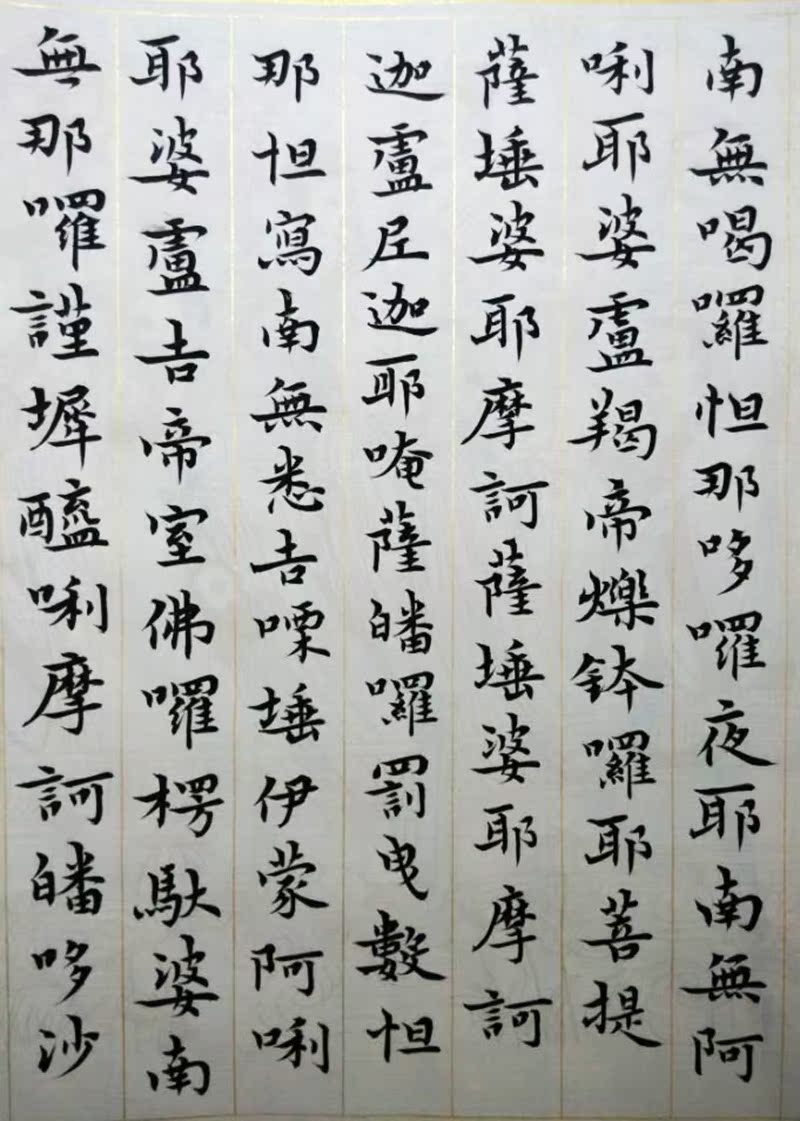 南無喝囉怛那哆囉夜耶南無阿
唎耶婆盧羯帝爍鉢囉耶菩提
薩埵婆耶摩訶薩埵婆耶摩訶
迦盧尼迦耶唵薩皤囉罰曳數怛
那怛寫南無悉吉嘌埵伊蒙阿唎
耶婆盧吉帝室佛囉楞馱婆南
無那囉謹墀醯唎摩訶皤哆沙